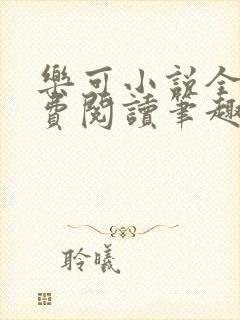 樂可小說全
費閱讀筆趣
聆曦